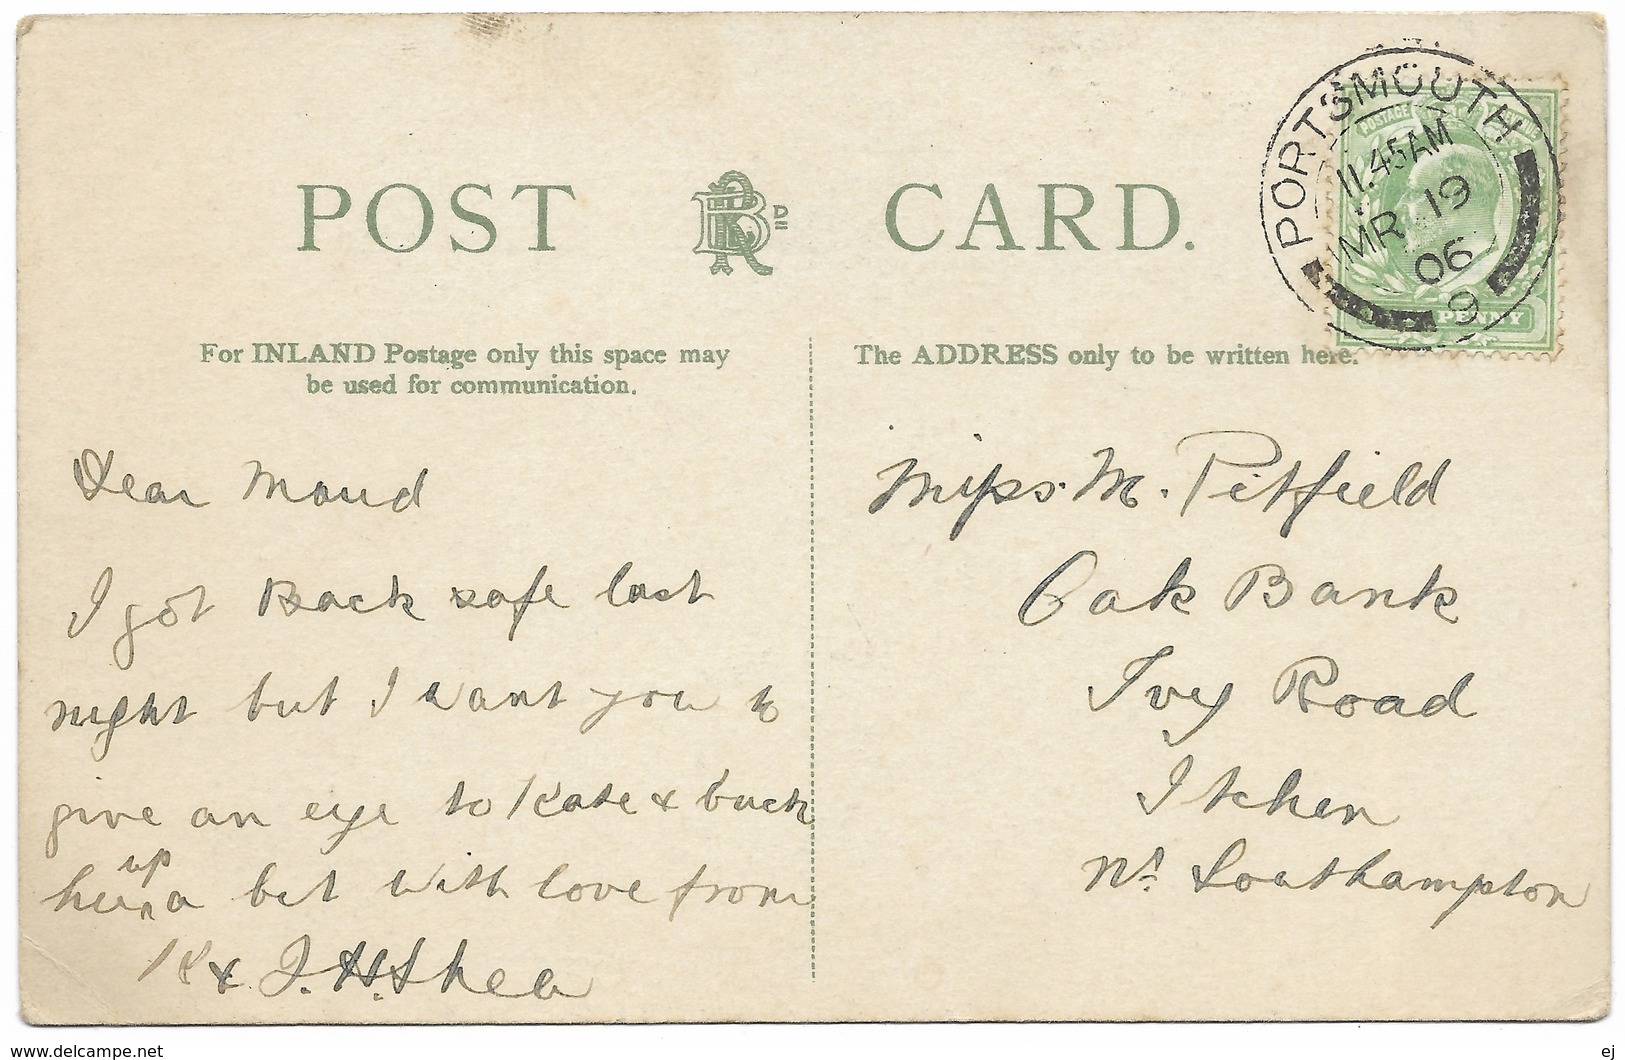 POST RBD CARD.
PORTSMOUTH
11.45AM
MR 19
06
9
POSTAGE
PENNY
For INLAND Postage only this space may
be used for communication.
The ADDRESS only to be written here.
Dear Maud
I got Back safe last
night but I want you to
give an eye to Kate & buck
her up a bit with love from
K & J. H. Shea
Miss. M. Pitfield
Oak Bank
Ivy Road
Itchen
Nr Southampton
www.delcampe.net
ej